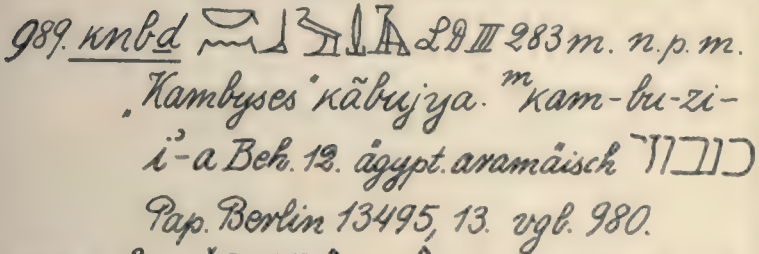 989. knbḏ LD III 283 m. n. p. m.
„Kambyses“ kãbujya. ᵐkam-bu-zi-
i’-a Beh. 12. ägypt. aramäisch כנבוזי
Pap. Berlin 13495, 13. vgl. 980.